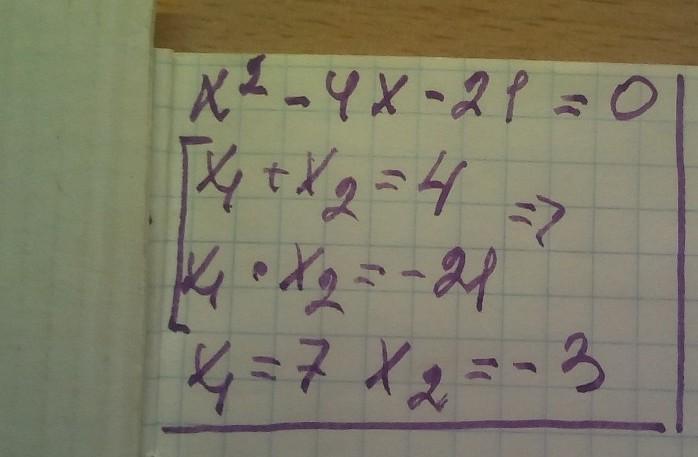 x² - 4x - 21 = 0
[ x₁ + x₂ = 4
x₁ • x₂ = -21 =>
x₁ = 7 x₂ = -3